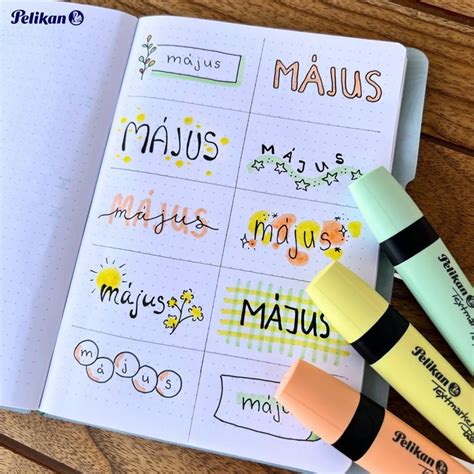 Pelikan
május
MÁJUS
MÁJUS
MÁJUS
MÁJUS
május
május
május
MÁJUS
május
május
Pelikan
Textmarker
Pelikan
Textmarker
Pelikan
Textmarker